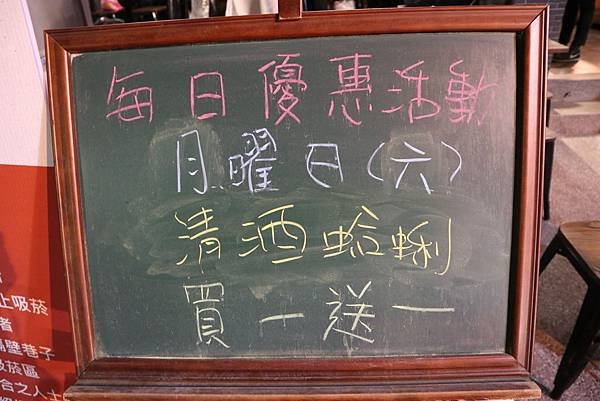 每日優惠活動
月曜日(六)
清酒蛤蜊
買一送一
止吸菸
者
隔壁巷子
吸菸區
合之人士